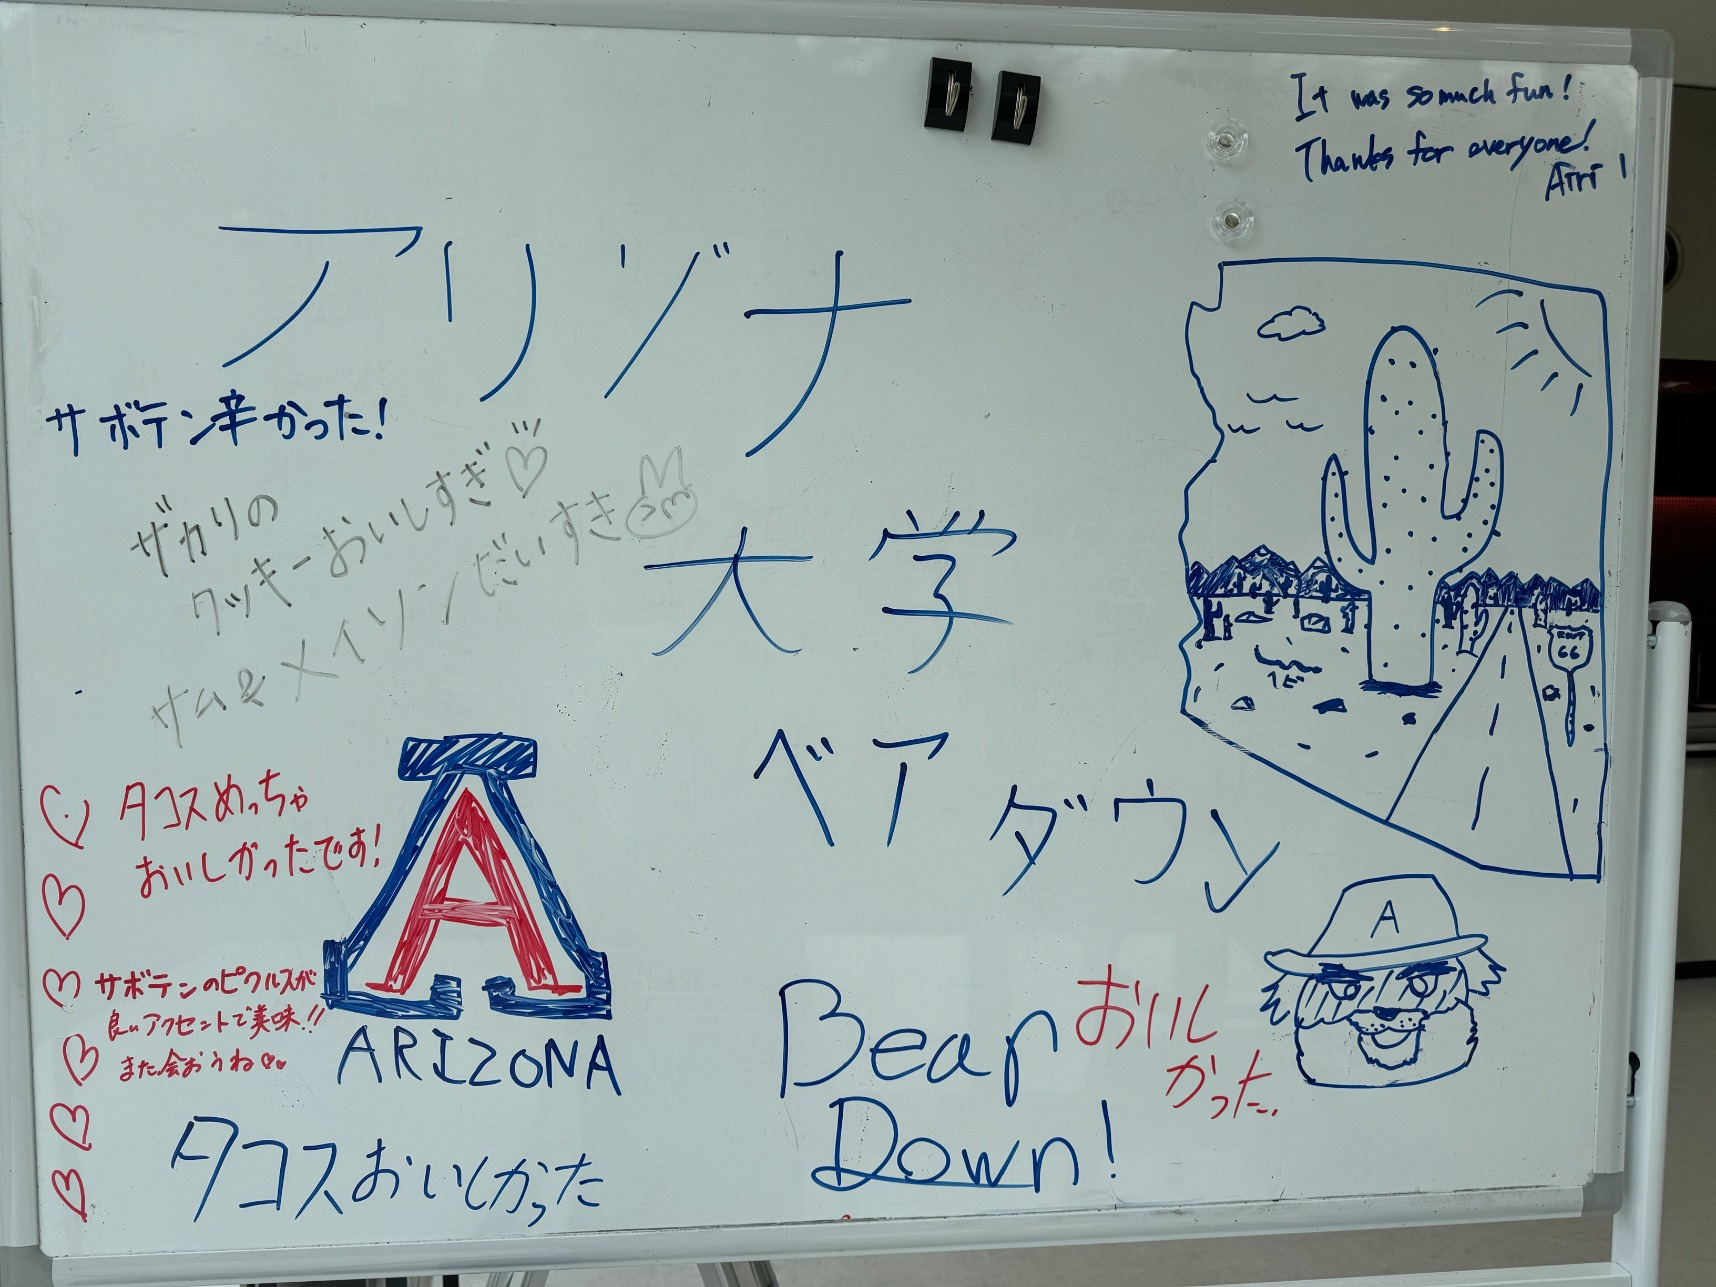 It was so much fun!
Thanks for everyone!
Airi
アリゾナ
サボテン辛かった!
ザカリの
クッキーおいしすぎ♡
サム&メイソンだいすき
大学
ROUTE
66
ベア
ダウン
タコスめっちゃ
おいしかったです!
A
ARIZONA
サボテンのピクルスが
良いアクセントで美味!!
また会おうね
A
Bear
Down!
おいし
かった.
タコスおいしかった